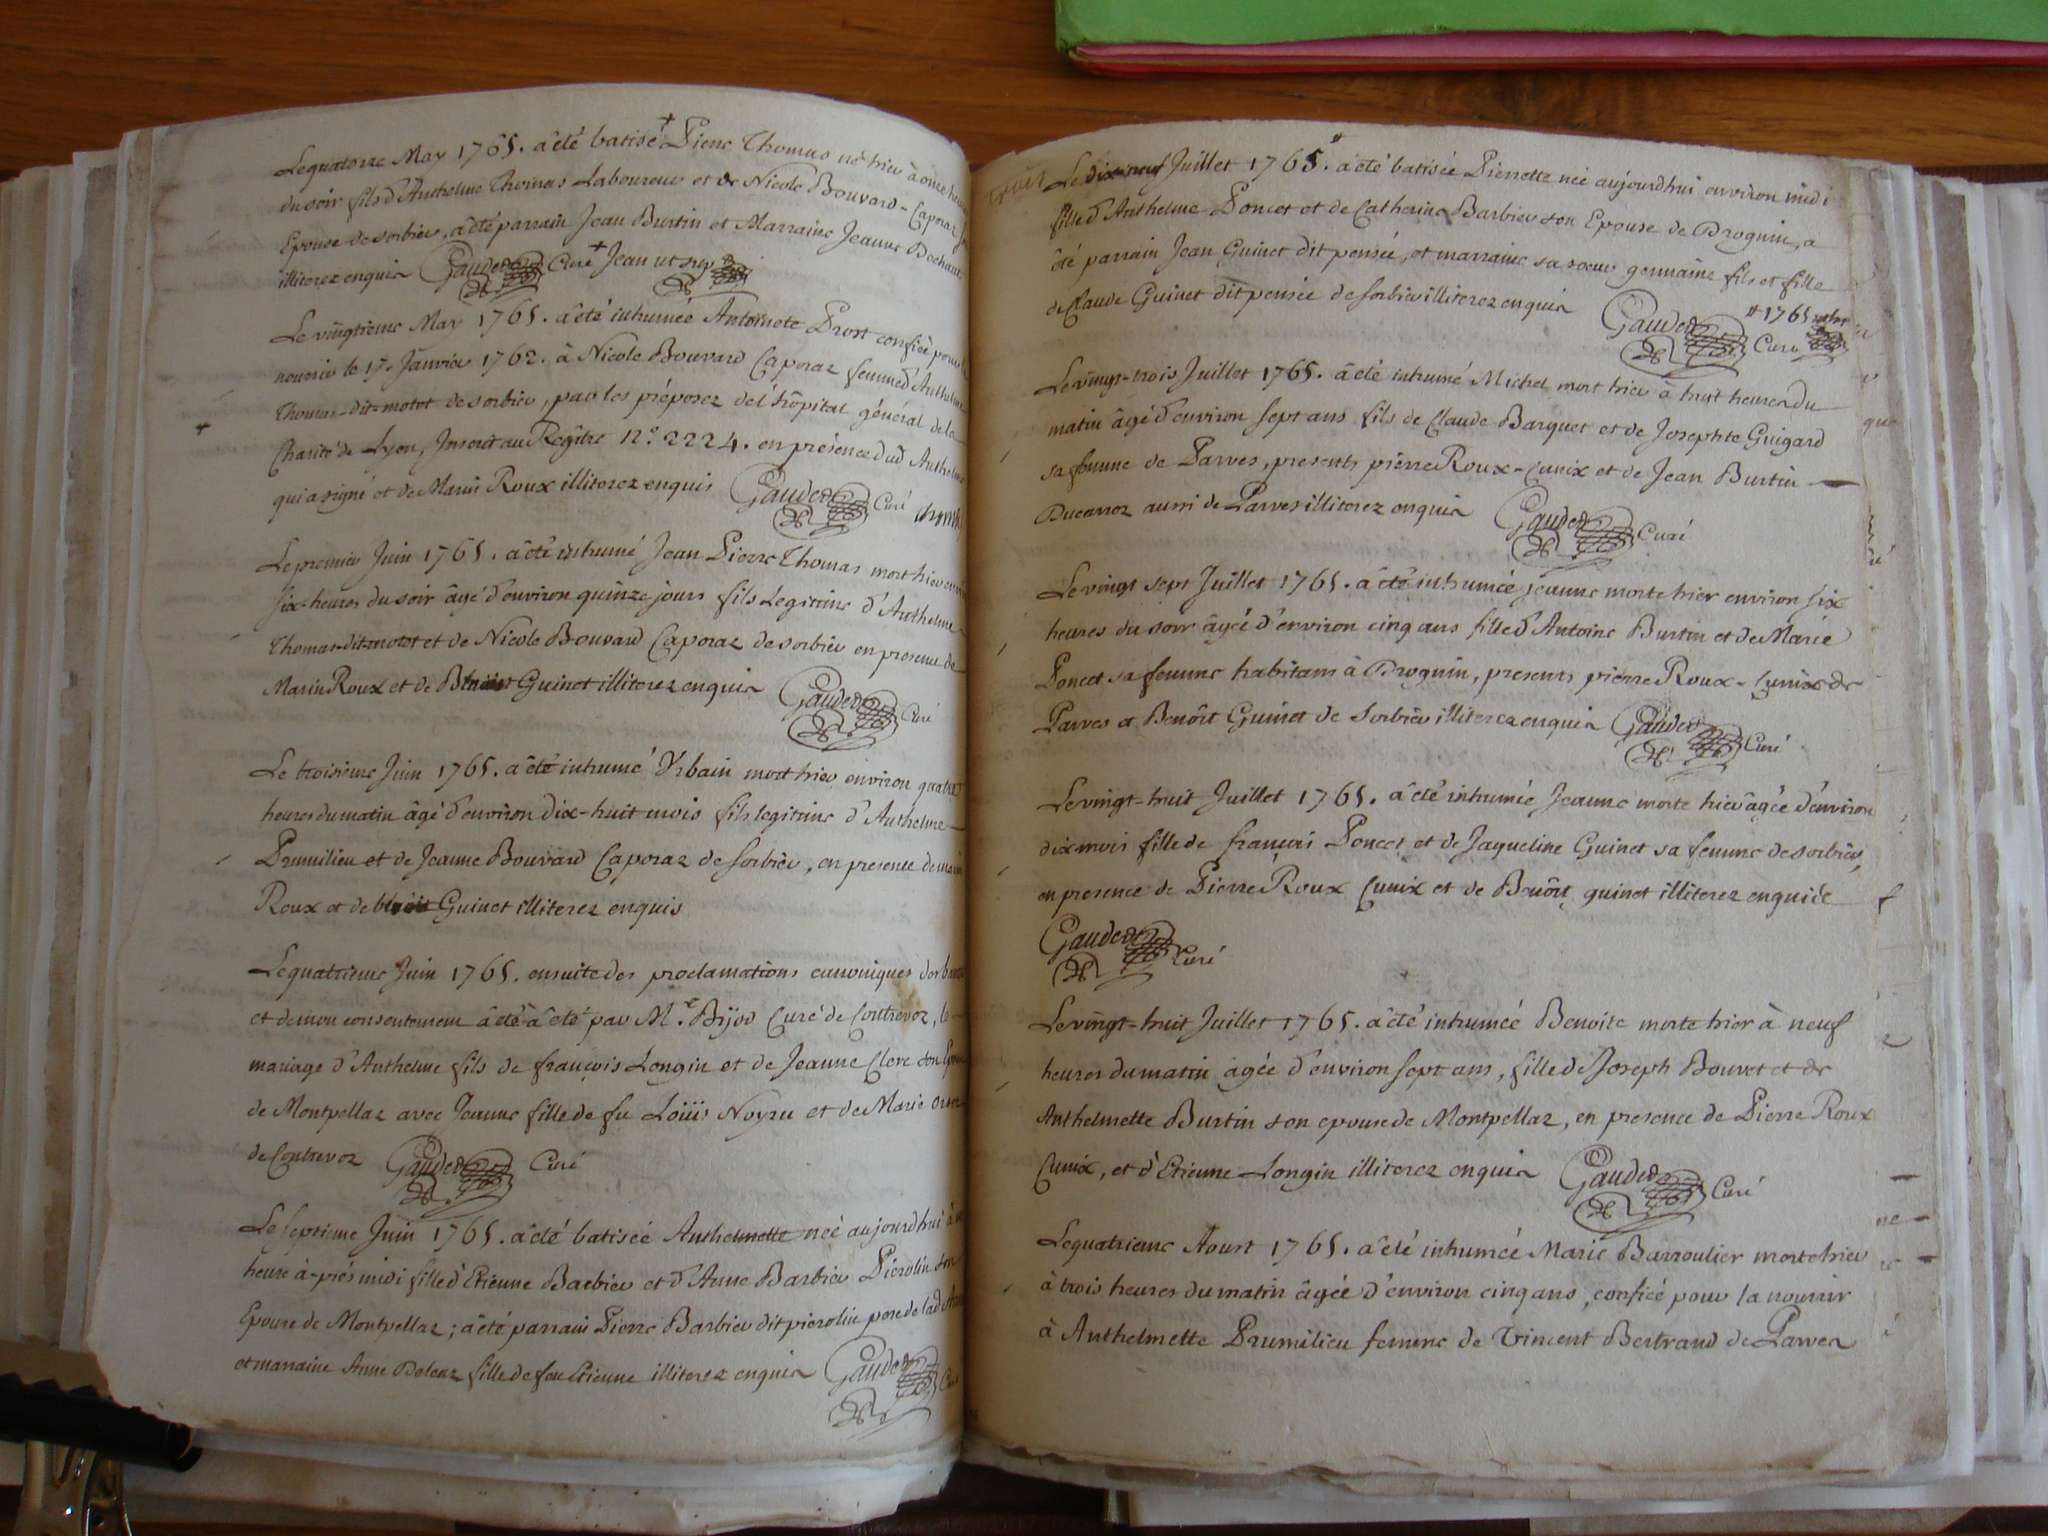 Le quatorze May 1765. a êté batisé + Pierre Thomas né hier à onze heures
du soir fils d'Anthelme Thomas Laboureur et de Nicole Bouvard-Caporaz
Epouse de sorbier, a êté parrain Jean Burtin et Marraine Jeanne Bochaut
illiterez enquis Gauder Curé + Jean ut sup
Le vingtieme May 1765. a êté inhumée Antoinete Prost confiée pour
nourrir le 17. Janvier 1762. à Nicole Bouvard Caporaz femme d'Anthelme
Thomas-dit-motot de sorbier, par les préposez de l'hôpital général de la
Charité de Lyon, Inscrit au Regître N.º 2224. en présence dud Anthelme
qui a signé et de Marin Roux illiterez enquis Gauder Curé
Le premier Juin 1765. a êté inhumé Jean Pierre Thomas mort hier environ
six-heures du soir âgé d'environ quinze jours fils Legitime d'Anthelme
Thomas-dit-motot et de Nicole Bouvard Caporaz de sorbier en presence de
Marin Roux et de Guinet illiterez enquis Gauder Curé
Le troisieme Juin 1765. a êté inhumé Vrbain mort hier environ quatre
heures du matin âgé d'environ dix-huit mois fils legitime d'Anthelme
Prumilieu et de Jeanne Bouvard Caporaz de sorbier, en presence de marin
Roux et de Guinet illiterez enquis
Le quatrieme Juin 1765. ensuite des proclamations canoniques des bans
et de mon consentement a êté a êté par M.r Bijod Curé de Contrevoz, le
mariage d'Anthelme fils de françois Longin et de Jeanne Clerc son Epouse
de Montpellaz avec Jeanne fille de fu Loüis Noyru et de Marie
de Contrevoz Gauder Curé
Le septieme Juin 1765. a êté batisée Anthelmette née aujourdhui à
heure à-près midi fille d'Etienne Barbier et d'Anne Barbier Pierolin son
Epouse de Montpellaz; a êté parrain Pierre Barbier dit pierolin pere de lad
et marraine Anne fille de feu Etienne illiterez enquis Gauder Curé
Le dix-neuf Juillet 1765. # a êté batisée Pierrette née aujourdhui environ midi
fille d'Anthelme Poncet et de Catherine Barbier son Epouse de Brognin, a
êté parrain Jean Guinet dit pensée, et marraine sa soeur germaine fils et fille
de Claude Guinet dit pensée de sorbier illiterez enquis Gauder Curé # 1765
Le vingt-trois Juillet 1765. a êté inhumé Michel mort hier à huit heures du
matin âgé d'environ sept ans fils de Claude Barquet et de Josephte Guigard
sa femme de Parves, presents pierre Roux-Cunix et de Jean Burtin
Ducarroz aussi de Parves illiterez enquis Gauder Curé
Le vingt sept Juillet 1765. a êté inhumée jeanne morte hier environ six
heures du soir âgée d'environ cinq ans fille d'Antoine Burtin et de Marie
Poncet sa femme habitans à Brognin, presents pierre Roux-Cunix de
Parves et Benoît Guinet de Sorbier illiterez enquis Gauder Curé
Le vingt-huit Juillet 1765. a êté inhumée Jeanne morte hier âgée d'environ
dix mois fille de françois Poncet et de Jaqueline Guinet sa femme de sorbier,
en presence de Pierre Roux Cunix et de Benôit guinet illiterez enquis
Gauder Curé
Le vingt-huit Juillet 1765. a êté inhumée Benoite morte hier à neuf
heures du matin agée d'environ sept ans, fille de Joseph Bouvet et de
Anthelmette Burtin son epouse de Montpellaz, en presence de Pierre Roux
Cunix, et d'Etienne Longin illiterez enquis Gauder Curé
Le quatrieme Aoust 1765. a êté inhumée Marie Barroulier morte hier
à trois heures du matin âgée d'environ cinq ans, confiée pour la nourrir
à Anthelmette Prumilieu femme de Vincent Bertrand de Parves